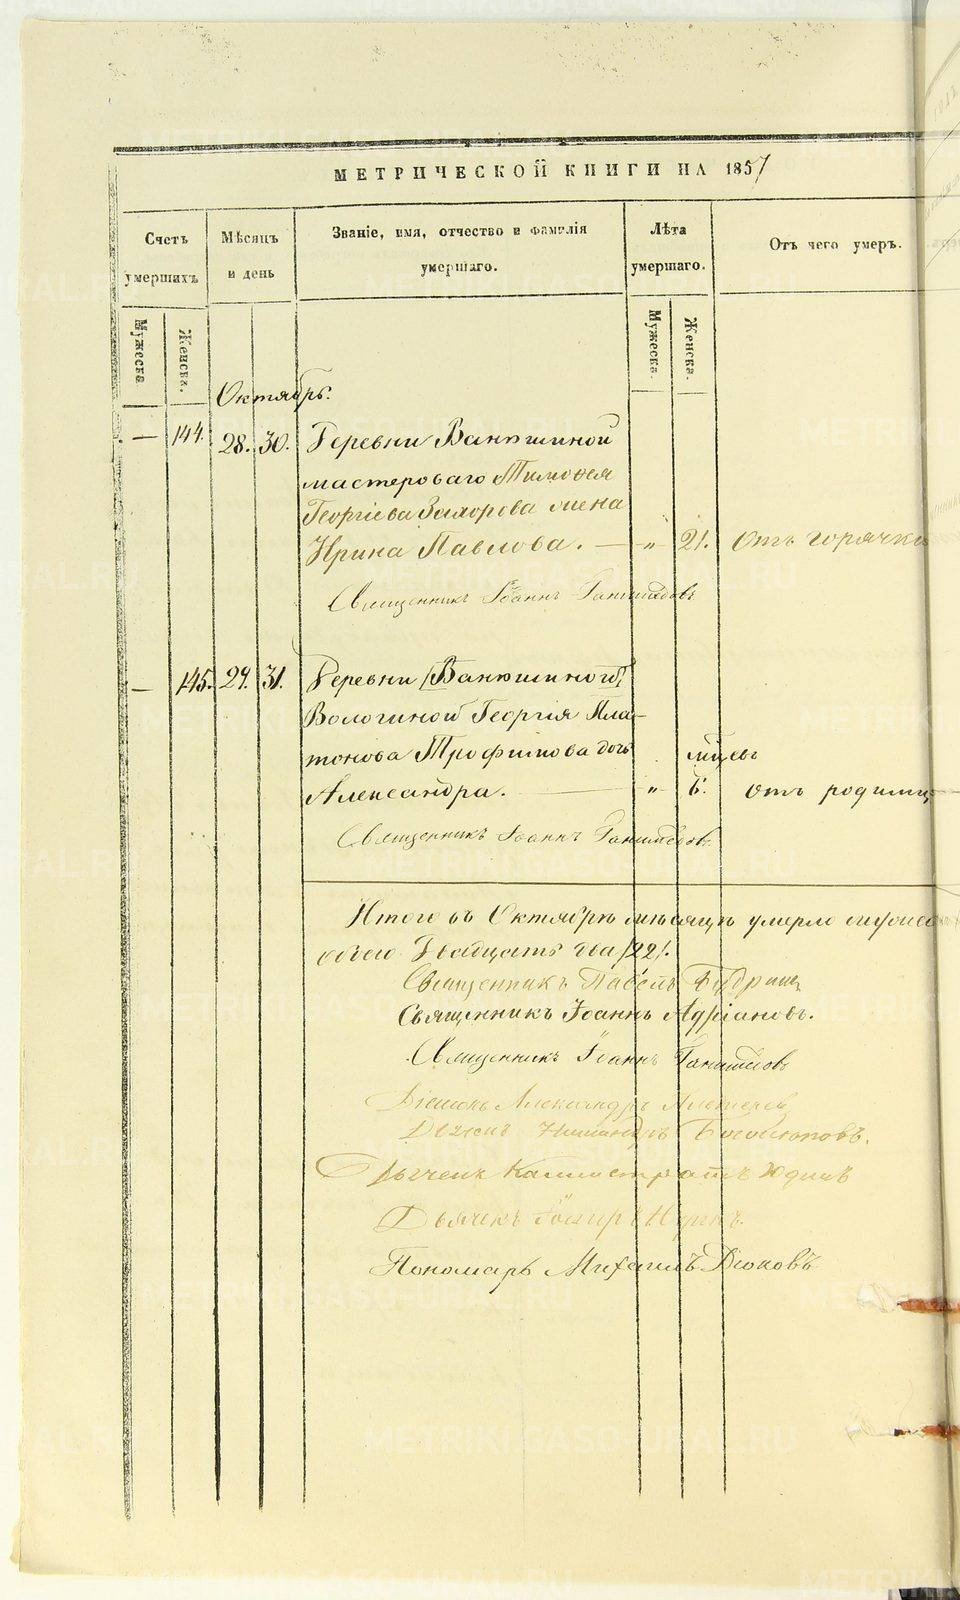 МЕТРИЧЕСКОЙ КНИГИ НА 1857
Счетъ умершихъ
Мѣсяцъ и день
Званіе, имя, отчество и фамилія умершаго.
Лѣта умершаго.
Отъ чего умеръ.
Мужеска
Женска.
Мужеска.
Женска.
Октябрь.
— 144. 28. 30. Деревни Ванюшиной
мастероваго Тимоѳея
Георгіева жена
Ирина Павлова. — „ 21. Отъ горячки
Священникъ Іоаннъ Ганимедовъ
— 145. 29. 31. Деревни (Ванюшиной)
Вологиной Георгія Пла-
тонова Трофимова дочь мцевъ
Александра. — „ 6. Отъ родимц
Священникъ Іоаннъ Ганимедовъ
Итого въ Октябрѣ мѣсяцѣ умерло
обоего Двадцать два /22/.
Священникъ Павелъ
Священникъ Іоаннъ Адріановъ.
Священникъ Іоаннъ Ганимедовъ
Діаконъ Александръ
Діаконъ
Дьячекъ Каллистратъ Юдинъ
Дьячекъ
Пономарь Михаилъ Діоковъ
METRIKI.GASO-URAL.RU